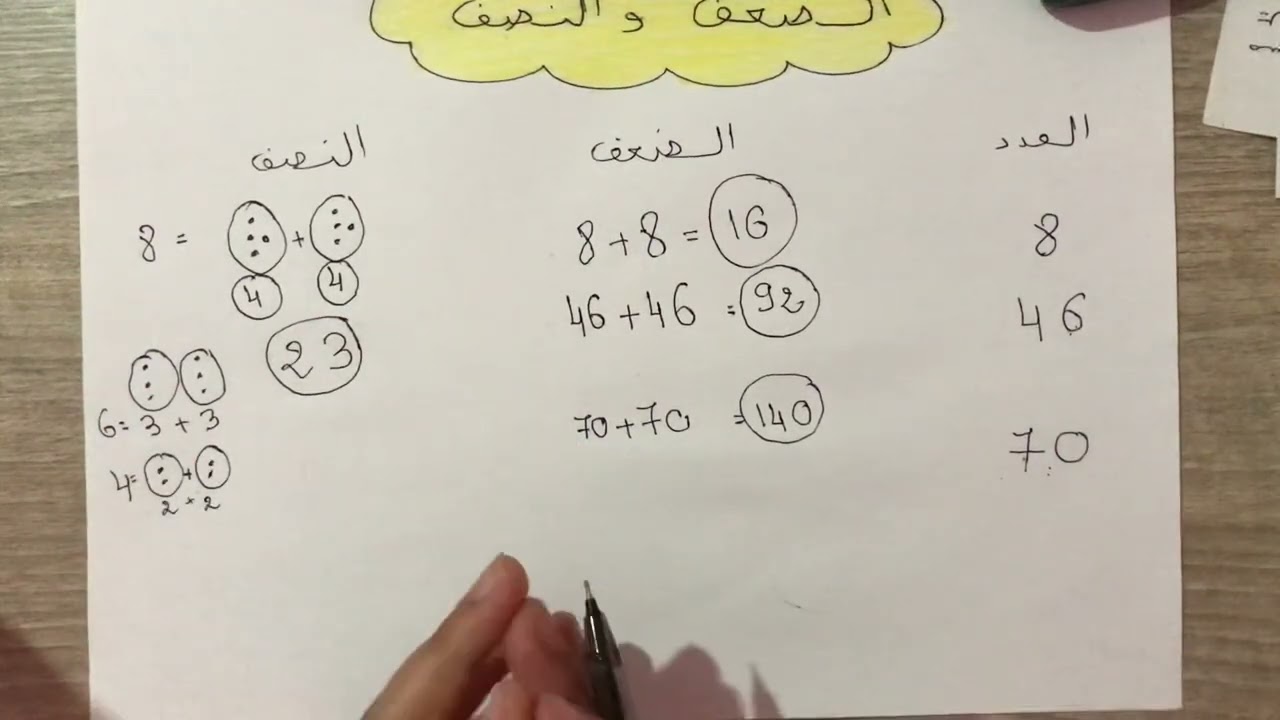 الضعف والنصف
العدد الضعف النصف
8 8+8=16 8 = +
4 4
46 46+46 =92 23
70 70+70 =140
6=3+3
4= +
2+2